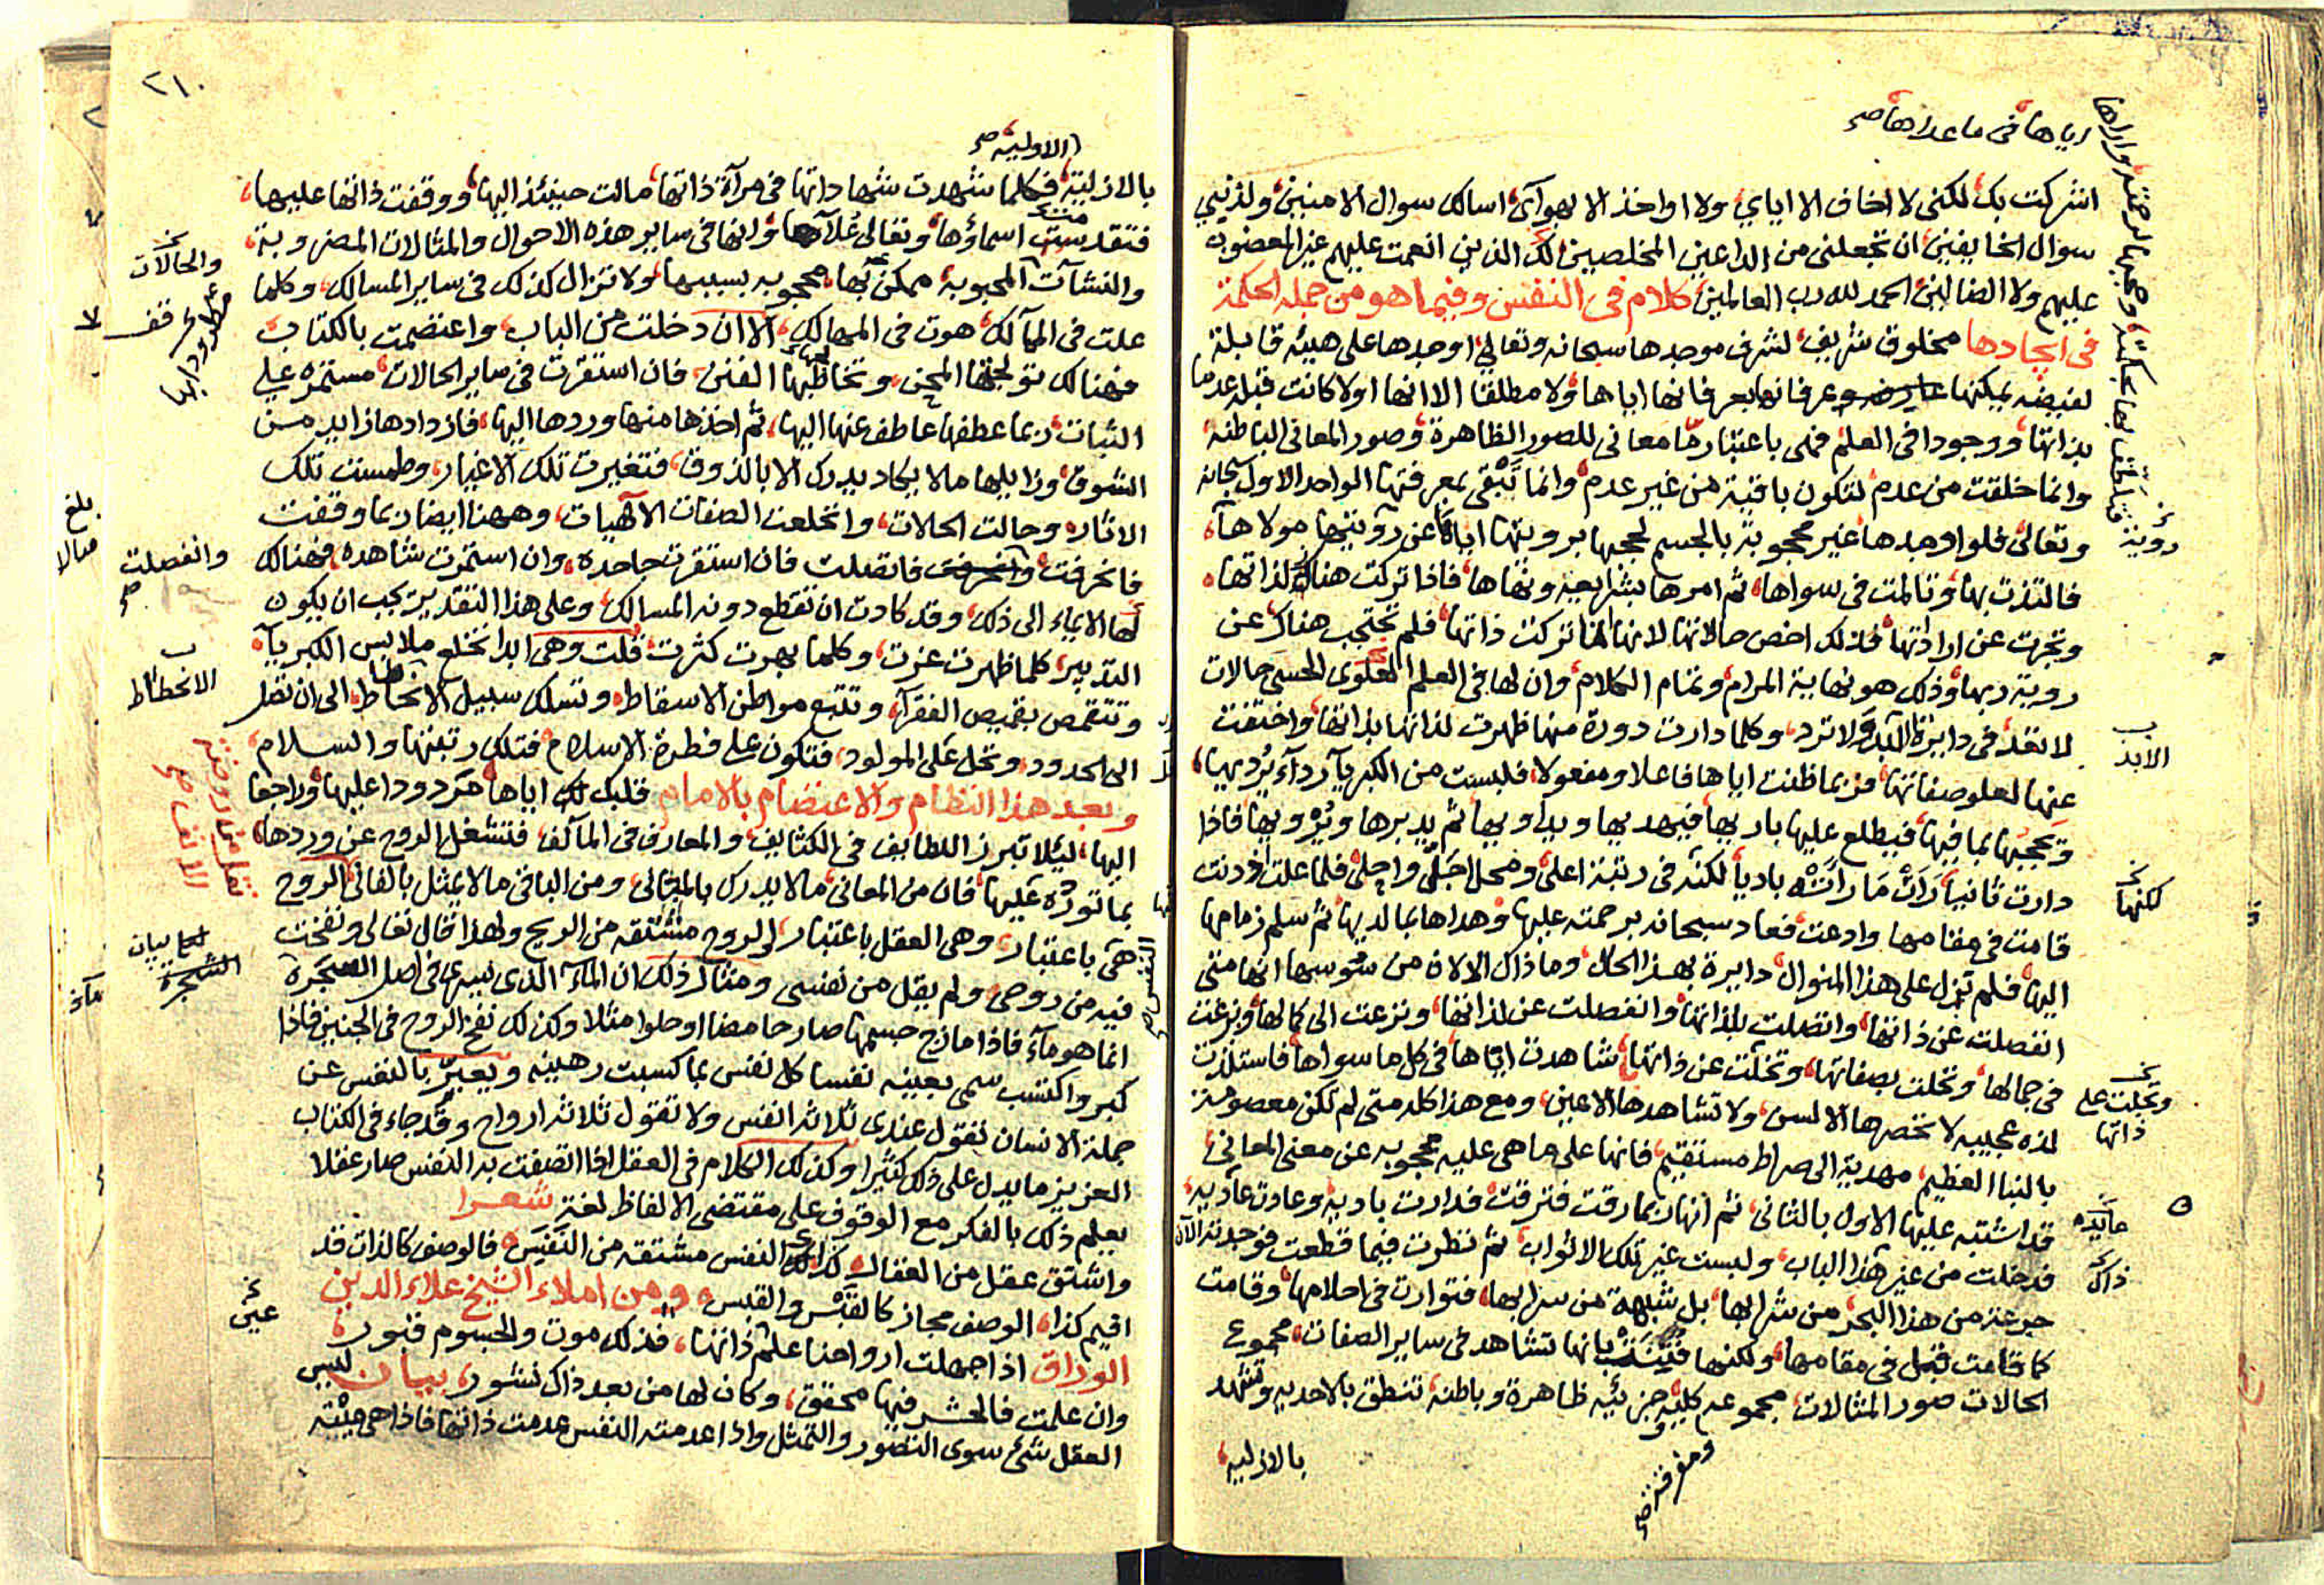 اياها في ما عداها صح
اشركت بك لكني لا اخاف الا اياي ولا اواخذ الا بهوآي اسالك سوال الامنين ولذنبي
سوال الخايفين ان تجعلني من الداعين المخلصين لك الذين انعمت عليهم غير المغضوب
عليهم ولا الضالين الحمد لله رب العالمين كلام في النفس وفيما هو من جملة الحكمة
في ايجادها مخلوق شريف لشرف موجدها سبحانه وتعالى اوجدها على هيئه قابلة
لفيضه يمكنها عرفانها بعرفانها اياها ولا مطلقا الا انها اولا كانت قبله عدما
بذاتها ووجودا في العلم فهي باعتبار ما معاني للصور الظاهرة وصور المعاني الباطنه
وانما خلقت من عدم لتكون باقية من غير عدم وانما تبقى بمعرفتها الواحد الاول سبحانه
وتعالى فلو اوجدها غير محجوبة بالجسم لحجبها برويتها اياها عن رويتها مولاهآ
فالتذت بها وتالمت في سواها ثم امرها بشرايعه ونهاها فاذا تركت هناك لذاتها
وتجرت عن ارادتها فذلك اخص حالاتها لانها لما تركت ذاتها فلم تحتجب هناك عن
روية ربها وذلك هو نهاية المرام وتمام الكلام وان لها في العلم العلوي الحسي حالات
لا تعد في دايرة الابد ولا ترد وكلما دارت دورة منها ظهرت لذاتها بذاتها واختفت
عنها لعلو صفاتها فربما ظنت اياها فاعلا ومفعولا فلبست من الكبريآ ردآء يرديها
ويحجبها بما فيها فيطلع عليها باريها فيهديها ويداويها ثم يدبرها ويرويها فاذا
دارت ثانيا رات ما راته باديا لكنه في رتبة اعلى ومحل اجلى واجلى فلما علت اودنت
قامت في مقامها وادعت فعاد سبحانه برحمته عليها وهداها بما لديها ثم سلم زمامها
اليها فلم تزل على هذا المنوال دايرة بهذا الحال وما ذاك الا لان من سوسها انها متى
انفصلت عن ذاتها واتصلت بلذاتها وانفصلت عن لذاتها ونزعت الى كمالها وبزغت
في جمالها وتحلت بصفاتها وتخلت عن ذاتها شاهدت اياها في كل ما سواها فاستلذت
لذه عجيبه لا تحصرها الالسن ولا تشاهدها الاعين ومع هذا كله متى لم تكن معصومة
بالنبا العظيم مهدية الى صراط مستقيم فانها على ما هي عليه محجوبه عن معنى المعاني
قد اشتبه عليها الاول بالثاني ثم انها ربما رقت فترقت فدارت باديه وعادت عاديه
فدخلت من غير هذا الباب ولبست غير تلك الاثواب ثم نظرت فيما قطعت فوجدته الآن
جرعة من هذا البحر من شرابها بل شبهة من سرابها فتوارت في احلامها وقامت
كما قامت قبل في مقامها ولكنها بانها تشاهد في ساير الصفات مجموع
الحالات صور المثالات مجموعه كليه جزئيه ظاهرة وباطنه تنطق بالاحديه وتشهد
بالازليه
ومفرقه صح
روية
الابد
لكنها
وتجلت على
ذاتها
عايده
ذاك
٢١٠
الاوليه صح
بالازلية فكلما شهدت شهاداتها في مرآة ذاتها مالت حينئذ اليها ووقفت ذاتها عليها
فتقدست اسماؤها وتعالى علآها وانها في ساير هذه الاحوال والمثالات المضروبة
والنشآت المحبوبة ممكن بها محجوبه بسببها ولا تزال كذلك في ساير المسالك وكلما
علت في المآلك هوت في المهالك الا ان دخلت من الباب واعتصمت بالكتاب
فهنالك تولجتها المحن وتخاطبها الفتن فان استقرت في ساير الحالات مستمره على
الثبات ربما عطفها عاطف عنها اليها ثم اخذها منها وردها اليها فازدادها زايد من
الشوق وزايلها ما لا يكاد يدرك الا بالذوق فتغيرت تلك الاغيار وطمست تلك
الاثار وحالت الحالات وانخلعت الصفات الآلهيات وههنا ايضا ربما وقفت
فانحرفت فاتصلت فان استقرت جاحده وان استمرت شاهده فهنالك
لها الايماء الى ذلك وقد كادت ان تقطع دونه المسالك وعلى هذا التقدير يجب ان يكون
التدبير كلما ظهرت عزت وكلما بهرت كثرت قلت وهي ابدا تخلع ملابس الكبريآء
وتتقمص بقميص الفقرآء وتتبع مواطن الاسقاط وتسلك سبيل الانحطاط الى ان تصل
الى الحدود وتحل على المولود فتكون على فطرة الاسلام فتلك رتبتها والسلام
وبعد هذا النظام والاعتصام بالامام قلبك لك اياها مردودا عليها وراجعا
اليها ليلا تبرز اللطايف في الكثايف والمعارف في المآلف فتشغل الروح عن وردها
بما تورده عليها فان من المعاني ما لا يدرك بالمعاني ومن الفاني ما لا يمثل بالفاني الروح
هي باعتبار وهي العقل باعتبار الروح مشتقه من الريح ولهذا قال تعالى ونفخت
فيه من روحي ولم يقل من نفسي ومثال ذلك ان المآء الذي يسري في اصل الشجرة
انما هو مآء فاذا مازج جسمها صار حامضا او حلوا مثلا وكذلك نفخ الروح في الجنين فاذا
كبر واكتسب سمي بعينه نفسا كل نفس بما كسبت رهينه ويعبر بالنفس عن
جملة الانسان تقول عندي ثلاثة انفس ولا تقول ثلاثة ارواح وقد جاء في الكتاب
العزيز ما يدل على ذلك كثيرا وكذلك الكلام في العقل اذا اتصفت به النفس صار عقلا
يعلم ذلك بالفكر مع الوقوف على مقتضى الالفاظ لغة شعرا
واشتق عقل من العقال كذلك النفس مشتقه من النفيس فالوصف كالذات قد
اقيم كذا الوصف مجاز كالقبس والقبس ومن املاء الشيخ علاء الدين
الوداق اذا جهلت ارواحنا علم ذاتها فذلك موت والجسوم قبور
وان علمت فالحشر فيها محقق وكان لها من بعد ذاك نشور بيان ليس
العقل شئ سوى التصور والتمثل واذا عدمته النفس عدمت ذاتها فاذا هي ميته
والحالات
بلغ
وانفصلت صح
الانحطاط
بيان
الشجرة
عين